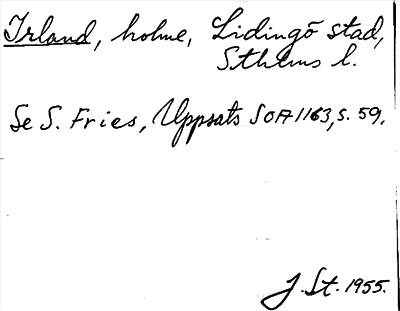 Irland, holme, Lidingö stad,
Sthlms l.
Se S. Fries, Uppsats SOFA 1163, s. 59.
J. St. 1955.